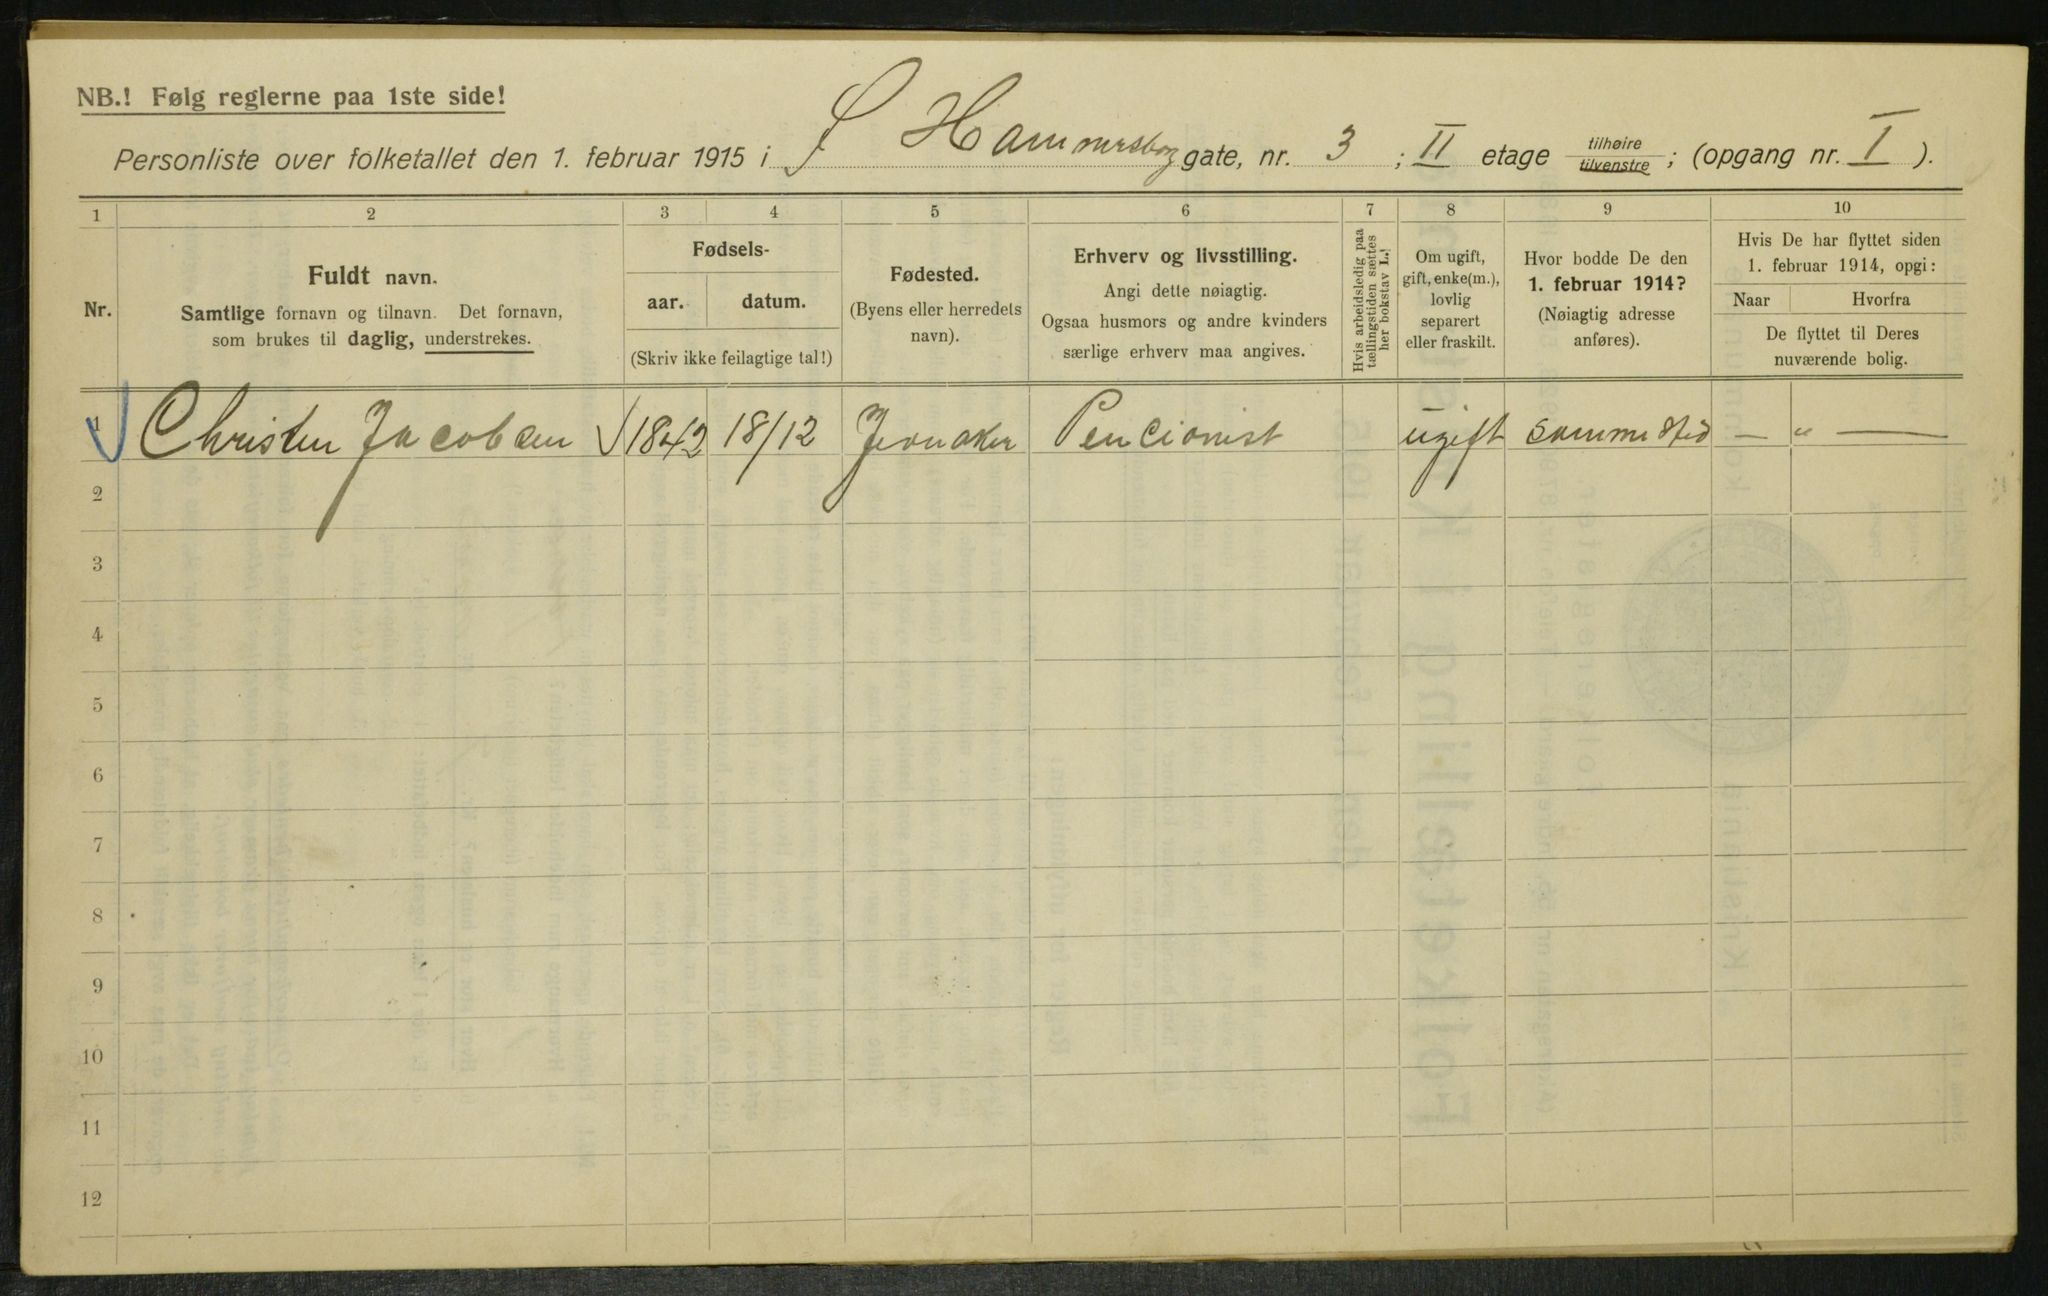 NB.! Følg reglerne paa 1ste side!
Personliste over folketallet den 1. februar 1915 i S Hammersborg gate, nr. 3 ; II etage tilhøire tilvenstre ; (opgang nr. I ).
1 2 3 4 5 6 7 8 9 10
Nr.
Fuldt navn.
Samtlige fornavn og tilnavn. Det fornavn,
som brukes til daglig, understrekes.
Fødsels-
aar. datum.
(Skriv ikke feilagtige tal!)
Fødested.
(Byens eller herredets
navn).
Erhverv og livsstilling.
Angi dette nøiagtig.
Ogsaa husmors og andre kvinders
særlige erhverv maa angives.
Hvis arbeidsledig paa
tællingstiden sættes
her bokstav L.!
Om ugift,
gift, enke(m.),
lovlig
separert
eller fraskilt.
Hvor bodde De den
1. februar 1914?
(Nøiagtig adresse
anføres).
Hvis De har flyttet siden
1. februar 1914, opgi:
Naar Hvorfra
De flyttet til Deres
nuværende bolig.
1 Christen Jacobsen 1842 18/12 Jevnaker Pencionist ugift Samme sted — „ —
2
3
4
5
6
7
8
9
10
11
12